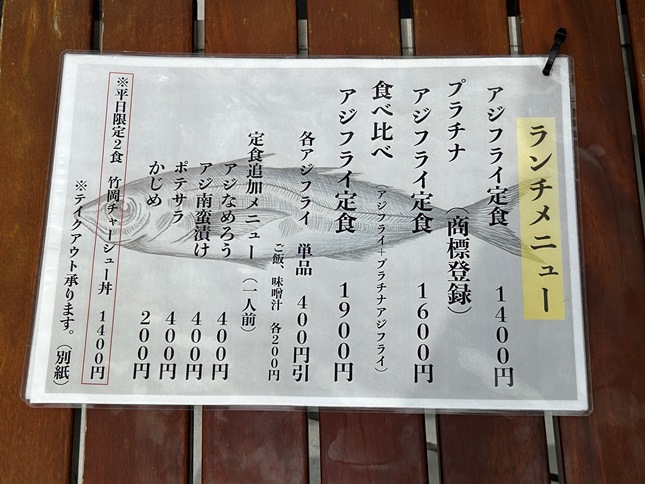 ランチメニュー
アジフライ定食 1400円
プラチナ（商標登録）
アジフライ定食 1600円
食べ比べ（アジフライ＋プラチナアジフライ）
アジフライ定食 1900円
各アジフライ 単品 400円引
ご飯、味噌汁 各200円
定食追加メニュー（一人前）
アジなめろう 400円
アジ南蛮漬け 400円
ポテサラ 400円
かじめ 200円
※平日限定2食 竹岡チャーシュー丼 1400円
※テイクアウト承ります。（別紙）